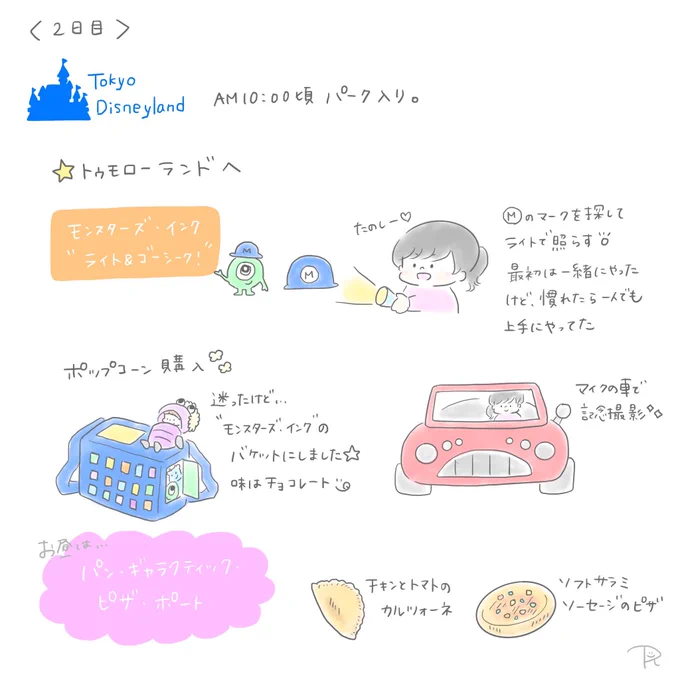 〈2日目〉
Tokyo
Disneyland
AM10:00頃 パーク入り。
トゥモローランドへ
モンスターズ・インク
"ライト&ゴーシーク!"
たのしー♡
M
Ⓜのマークを探して
ライトで照らす
最初は一緒にやった
けど、慣れたら一人でも
上手にやってた
ポップコーン購入
迷ったけど…
"モンスターズ・インク"の
バケットにしました☆
味はチョコレート
マイクの車で
記念撮影
お昼は…
パン・ギャラクティック・
ピザ・ポート
チキンとトマトの
カルツォーネ
ソフトサラミ
ソーセージのピザ